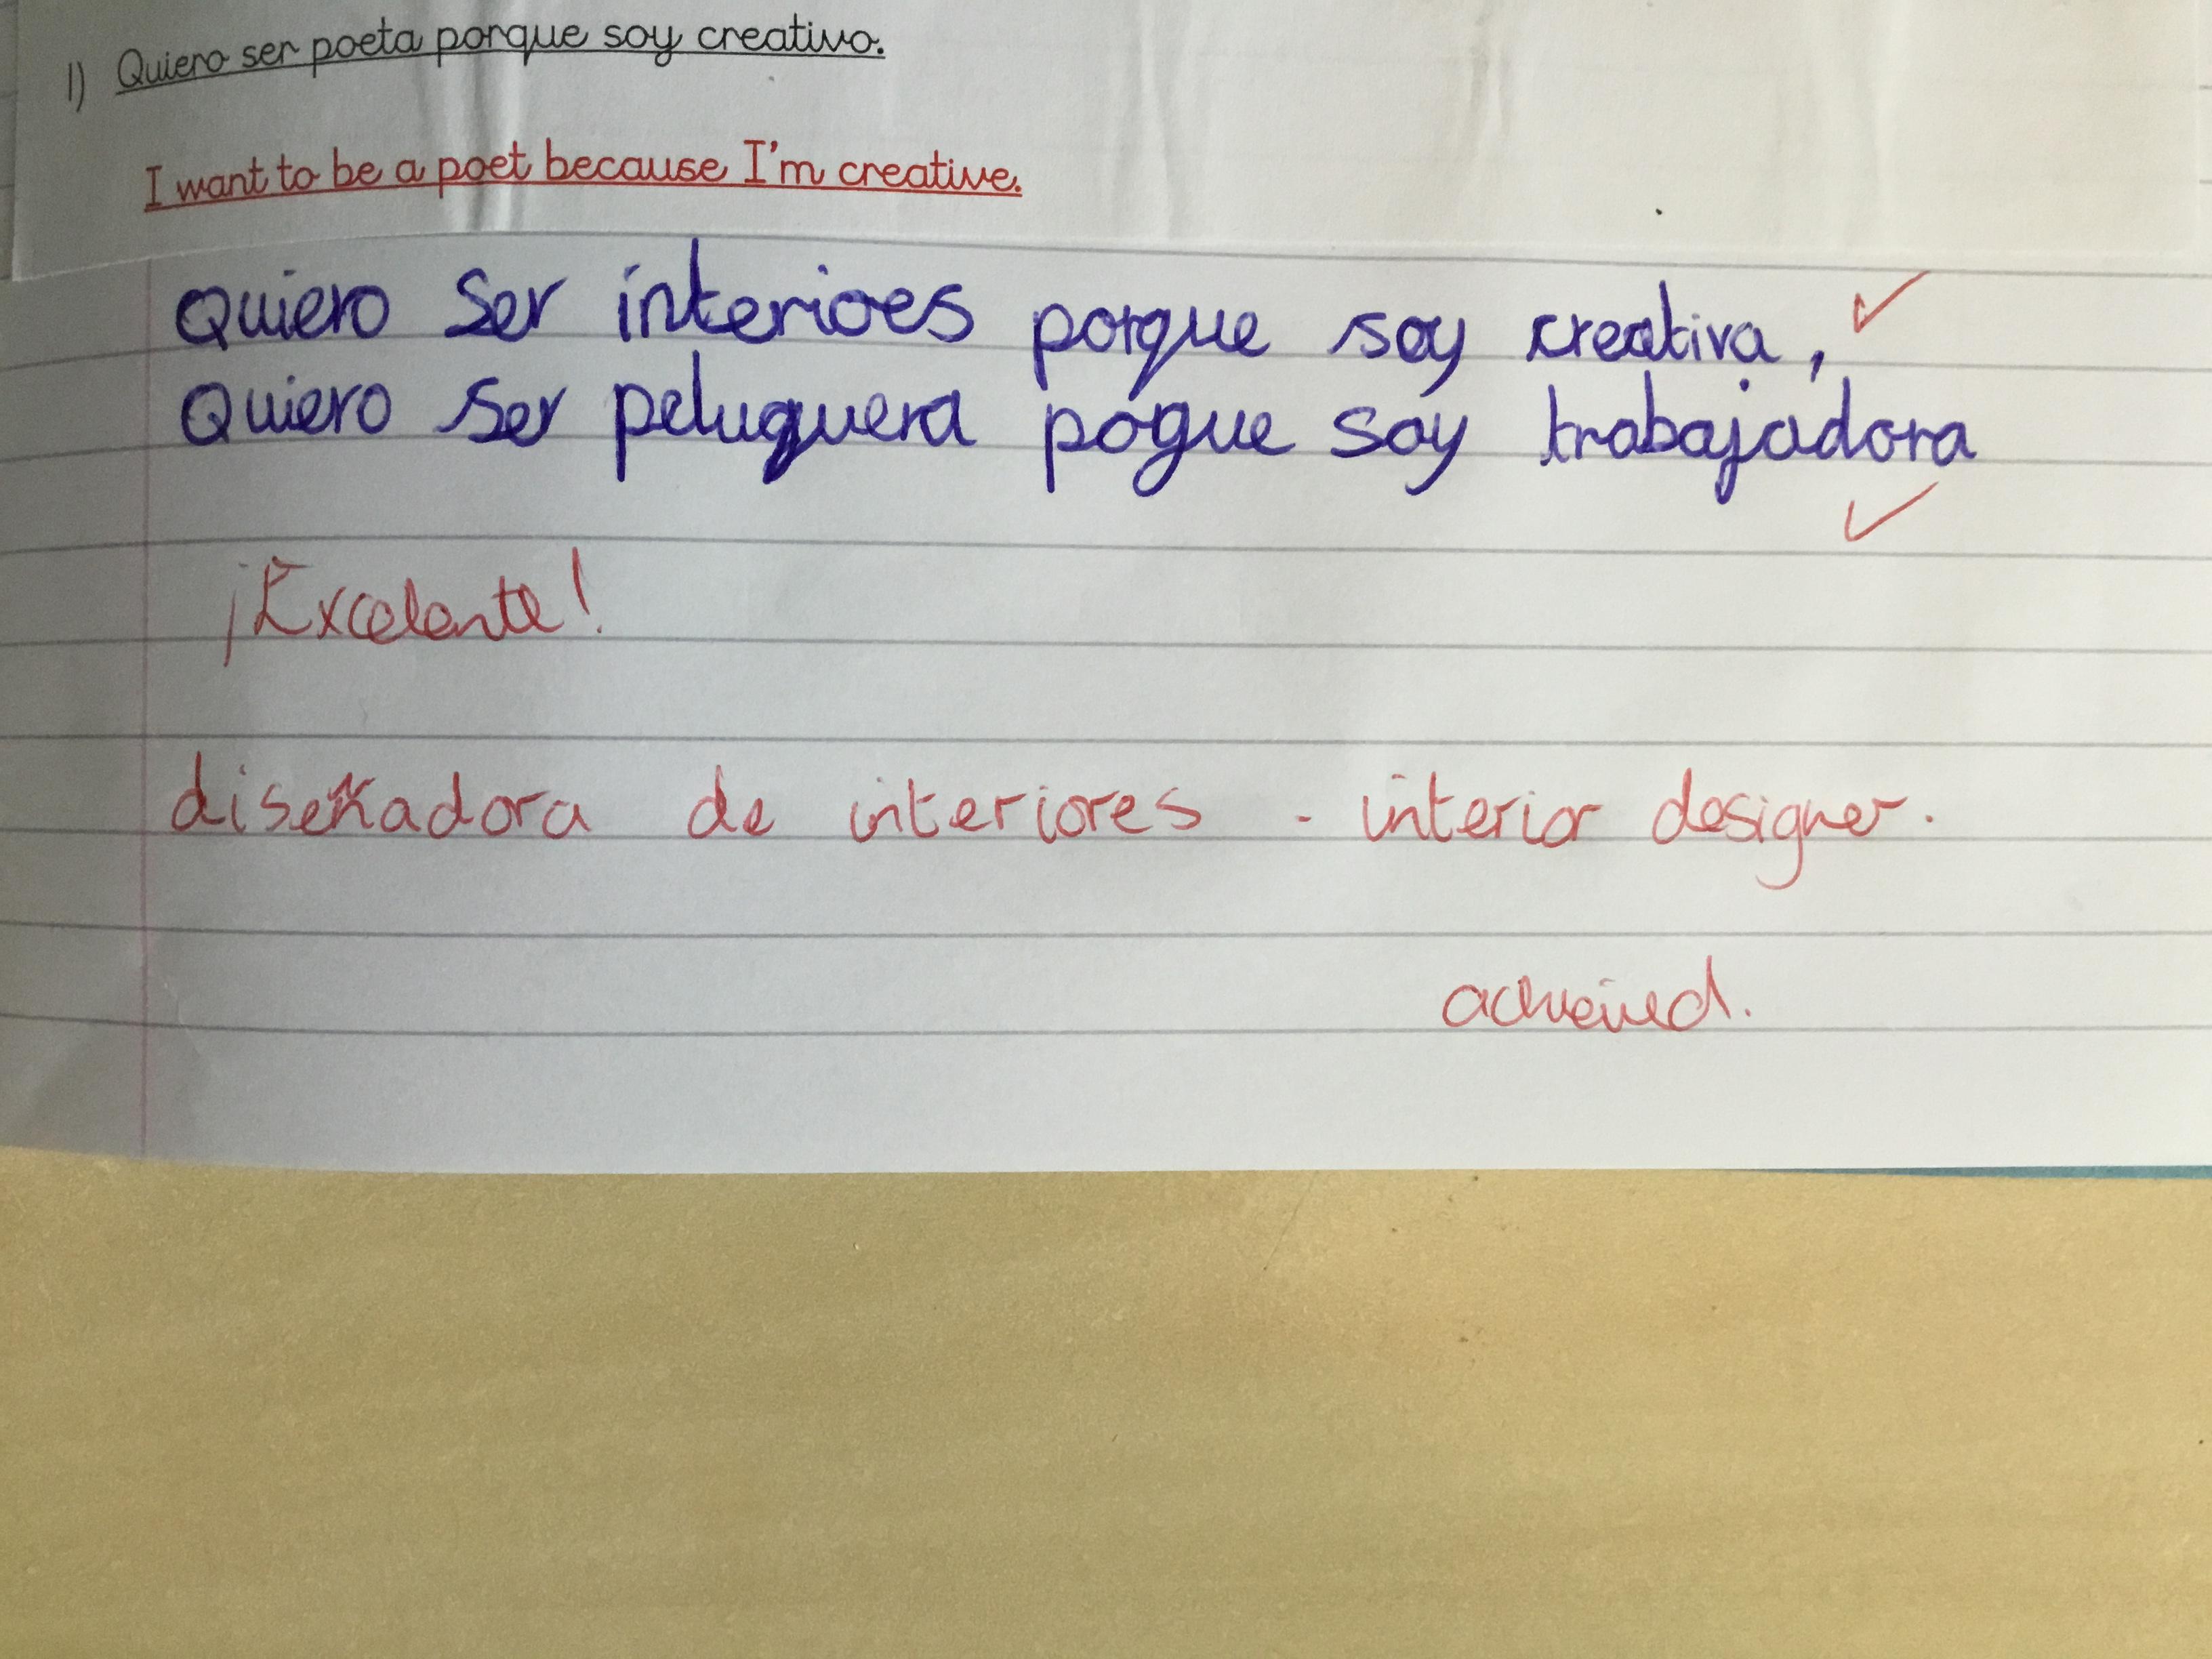 1) Quiero ser poeta porque soy creativo.
I want to be a poet because I'm creative.
Quiero ser interioes porque soy creativa,
Quiero ser peluquera pógue soy trabajadora
¡Excelente!
diseñadora de interiores - interior designer.
acheived.